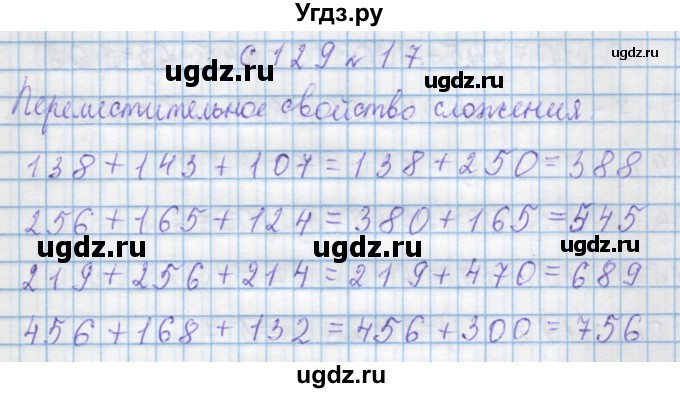 Угдз.ру
с 129 № 17
ugdz.ru ugdz.ru
Переместительное свойство сложения.
138+143+107=138+250=388
ugdz.ru
256+165+124=380+165=545
ugdz.ru ugdz.ru
219+256+214=219+470=689
456+168+132=456+300=756
ugdz.ru